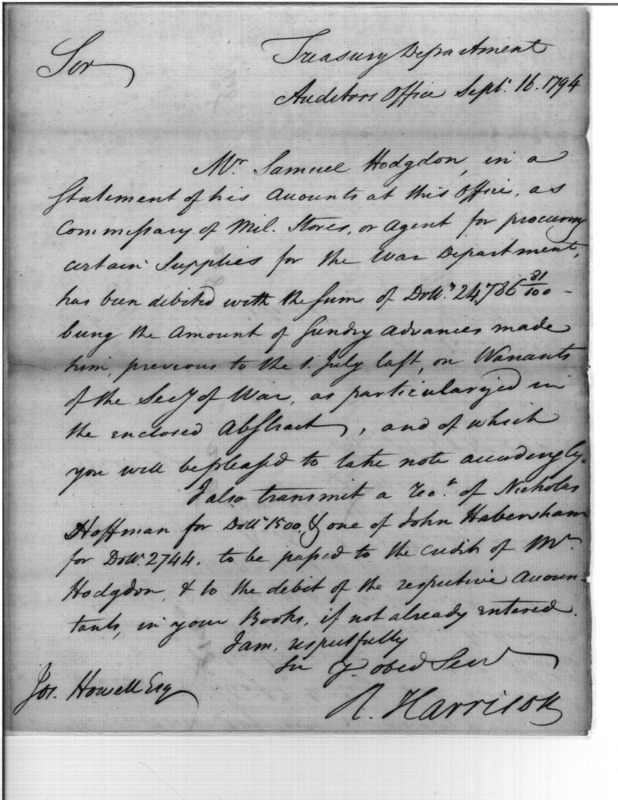 Sir
Treasury Department
Auditors Office Sept. 16. 1794
Mr. Samuel Hodgdon, in a
Statement of his Accounts at this Office, as
Commissary of Mil. Stores, or Agent for procuring
certain Supplies for the War Department,
has been debited with the Sum of Dolls. 24,786 31/100 -
being the Amount of Sundry Advances made
him, previous to the 1. July last, on Warrants
of the Secy of War, as particularized in
the enclosed Abstract, and of which
you will be pleased to take note accordingly.
I also transmit a Rect. of Nicholas
Hoffman for Dolls. 1500, & one of John Habersham
for Dolls. 2744. to be passed to the credit of Mr.
Hodgdon, & to the debit of the respective Accoun-
tants, in your Books, if not already entered.
I am, respectfully
Sir yr. obed Serv
Jos. Howell Esq
R. Harrison